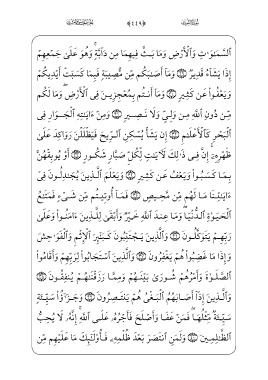 ﴿٤٨٦﴾
ٱلسَّمَٰوَٰتِ وَٱلْأَرْضِ وَمَا بَثَّ فِيهِمَا مِن دَآبَّةٍ وَهُوَ عَلَىٰ جَمْعِهِمْ
إِذَا يَشَآءُ قَدِيرٌ ۝ وَمَآ أَصَٰبَكُم مِّن مُّصِيبَةٍ فَبِمَا كَسَبَتْ أَيْدِيكُمْ
وَيَعْفُوا۟ عَن كَثِيرٍ ۝ وَمَآ أَنتُم بِمُعْجِزِينَ فِى ٱلْأَرْضِ وَمَا لَكُم
مِّن دُونِ ٱللَّهِ مِن وَلِىٍّ وَلَا نَصِيرٍ ۝ وَمِنْ ءَايَٰتِهِ ٱلْجَوَارِ فِى
ٱلْبَحْرِ كَٱلْأَعْلَٰمِ ۝ إِن يَشَأْ يُسْكِنِ ٱلرِّيحَ فَيَظْلَلْنَ رَوَاكِدَ عَلَىٰ
ظَهْرِهِۦٓ إِنَّ فِى ذَٰلِكَ لَءَايَٰتٍ لِّكُلِّ صَبَّارٍ شَكُورٍ ۝ أَوْ يُوبِقْهُنَّ
بِمَا كَسَبُوا۟ وَيَعْفُ عَن كَثِيرٍ ۝ وَيَعْلَمَ ٱلَّذِينَ يُجَٰدِلُونَ فِىٓ
ءَايَٰتِنَا مَا لَهُم مِّن مَّحِيصٍ ۝ فَمَآ أُوتِيتُم مِّن شَىْءٍ فَمَتَٰعُ
ٱلْحَيَوٰةِ ٱلدُّنْيَا وَمَا عِندَ ٱللَّهِ خَيْرٌ وَأَبْقَىٰ لِلَّذِينَ ءَامَنُوا۟ وَعَلَىٰ
رَبِّهِمْ يَتَوَكَّلُونَ ۝ وَٱلَّذِينَ يَجْتَنِبُونَ كَبَٰٓئِرَ ٱلْإِثْمِ وَٱلْفَوَٰحِشَ
وَإِذَا مَا غَضِبُوا۟ هُمْ يَغْفِرُونَ ۝ وَٱلَّذِينَ ٱسْتَجَابُوا۟ لِرَبِّهِمْ وَأَقَامُوا۟
ٱلصَّلَوٰةَ وَأَمْرُهُمْ شُورَىٰ بَيْنَهُمْ وَمِمَّا رَزَقْنَٰهُمْ يُنفِقُونَ ۝
وَٱلَّذِينَ إِذَآ أَصَابَهُمُ ٱلْبَغْىُ هُمْ يَنتَصِرُونَ ۝ وَجَزَٰٓؤُا۟ سَيِّئَةٍ
سَيِّئَةٌ مِّثْلُهَا فَمَنْ عَفَا وَأَصْلَحَ فَأَجْرُهُۥ عَلَى ٱللَّهِ إِنَّهُۥ لَا يُحِبُّ
ٱلظَّٰلِمِينَ ۝ وَلَمَنِ ٱنتَصَرَ بَعْدَ ظُلْمِهِۦ فَأُو۟لَٰٓئِكَ مَا عَلَيْهِم مِّن